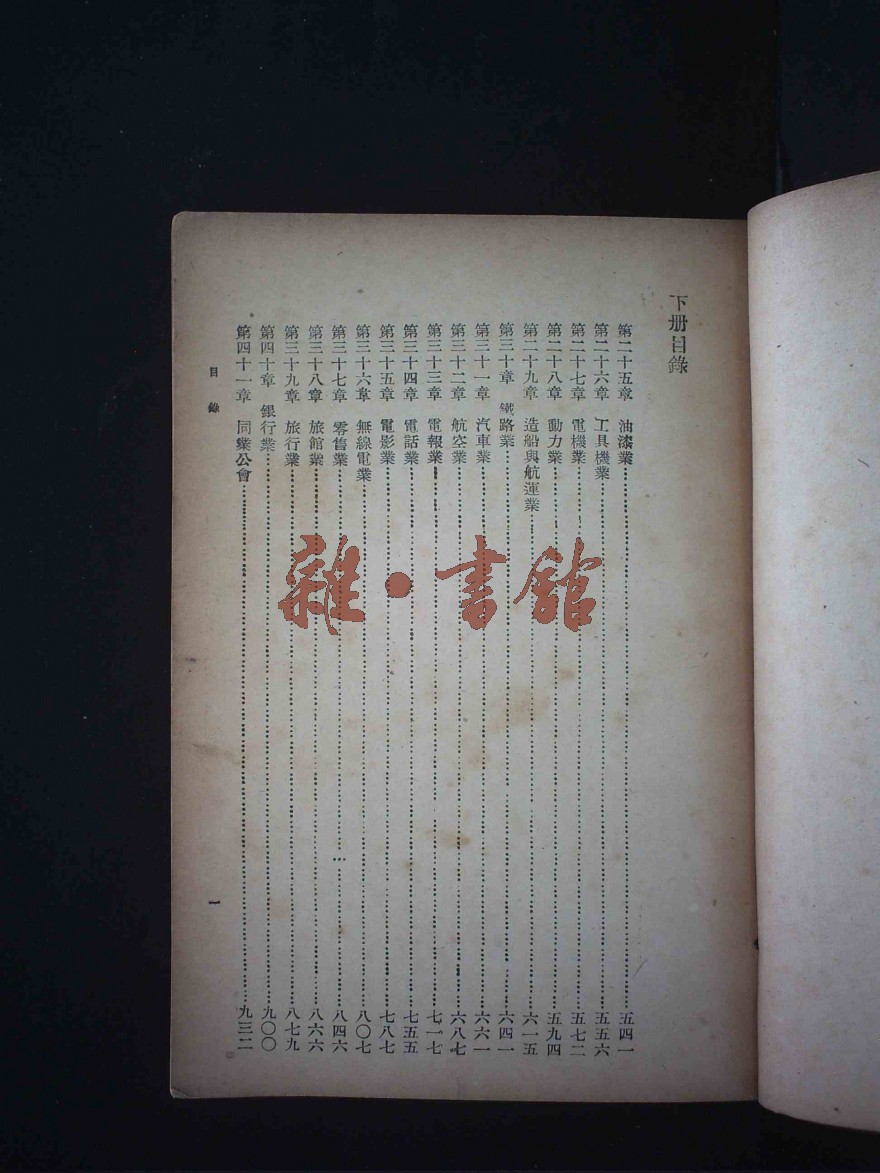 下册目錄
第二十五章 油漆業……五四一
第二十六章 工具機業……五五六
第二十七章 電機業……五七二
第二十八章 動力業……五九四
第二十九章 造船與航運業……六一五
第三十章 鐵路業……六四一
第三十一章 汽車業……六六一
第三十二章 航空業……六八七
第三十三章 電報業……七一七
第三十四章 電話業……七五五
第三十五章 電影業……七八七
第三十六章 無線電業……八〇七
第三十七章 零售業……八四六
第三十八章 旅館業……八六六
第三十九章 旅行業……八七九
第四十章 銀行業……九〇〇
第四十一章 同業公會……九三二
目錄
一
雜·書館